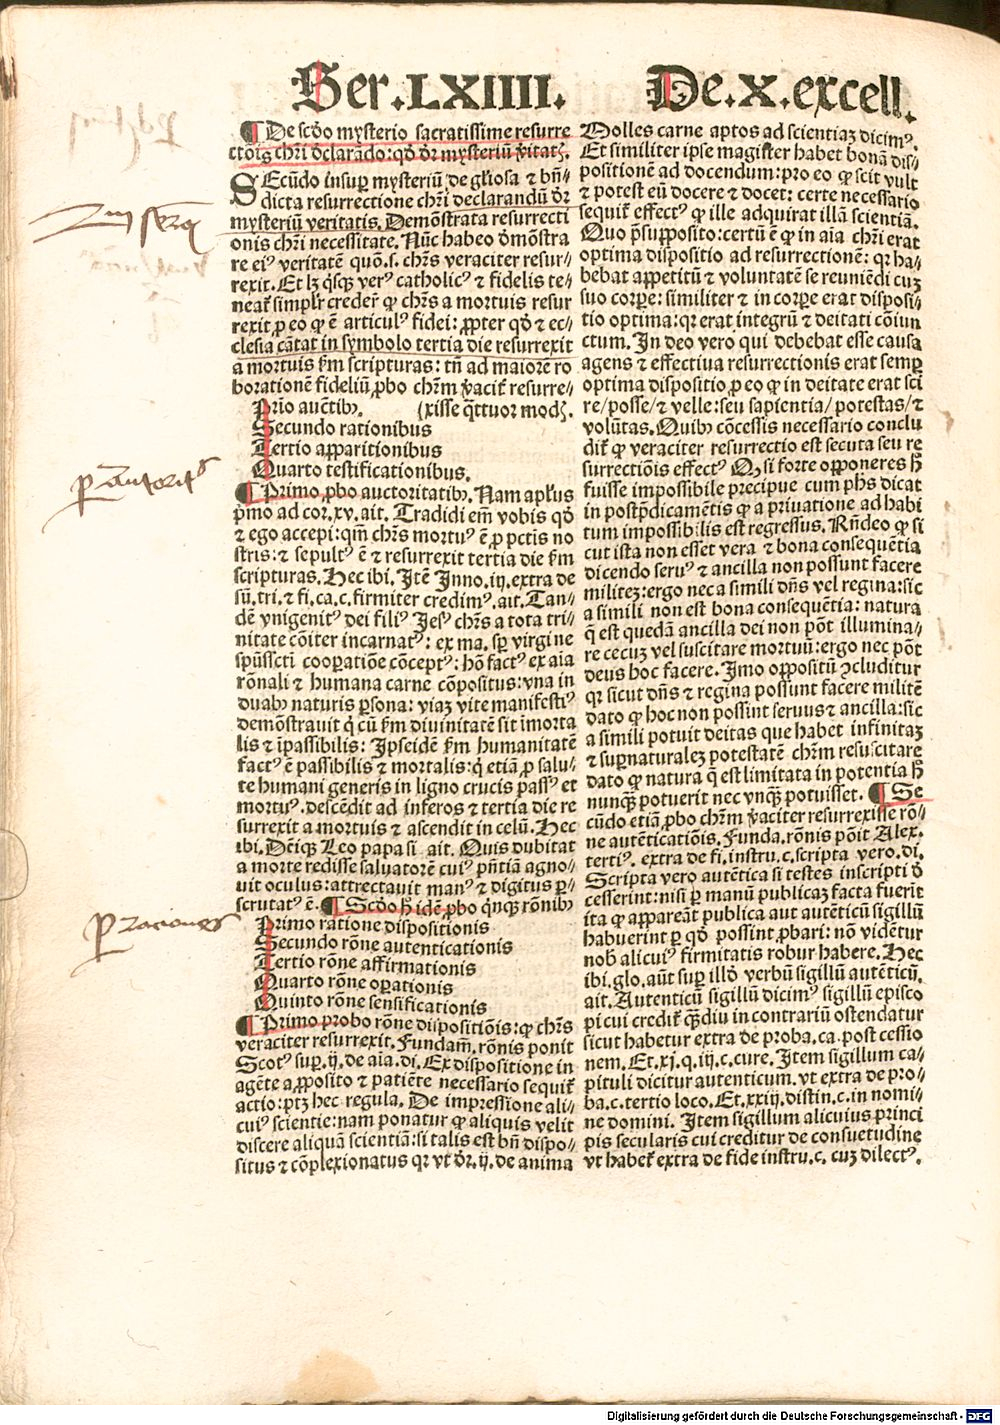 Ser.LXIIII. De.X.excell.
¶ De scđo mysterio sacratissime resurre
ctōis chr̄i d̄clarādo: qđ dr̄ mysteriū v̄itatꝭ.
SEcūdo insuꝑ mysteriū de gl̄iosa ⁊ bn̄⸗
dicta resurrectione chr̄i declarandū dr̄
mysteriū veritatis. Demōstrata resurrecti
onis chr̄i necessitate. Nūc habeo d̄mōstra
re eiꝰ veritatē quō.s. chr̄s veraciter resur⸗
rexit. Et lꝫ q̇sqꝫ verꝰ catholicꝰ ⁊ fidelis te⸗
neat̄ simplr̄ creder̄ ꝙ chr̄s a mortuis resur
rexit ꝓ eo ꝙ ē articulꝰ fidei: ꝓpter qđ ⁊ ec⸗
clesia cātat in symbolo tertia die resurrexit
a mortuis ẜm scripturas: tn̄ ad maiorē ro
borationē fideliū ꝓbo chr̄m v̄acit̄ resurre⸗
Prīo auc̄tibꝰ. (xisse q̄ttuor modꝭ.
Secundo rationibus
Tertio apparitionibus
Quarto testificationibus.
¶ Primo ꝓbo auctoritatibꝰ. Nam apl̄us
p̄mo ad cor.xv.ait. Tradidi em̄ vobis qđ
⁊ ego accepi: qm̄ chr̄s mortuꝰ ē ꝓ pctīs no
stris: ⁊ sepultꝰ ē ⁊ resurrexit tertia die ẜm
scripturas. Hec ibi. Itē Inno.iij.extra de
sū.tri.⁊ fi.ca.c.firmiter credimꝰ.ait. Tan⸗
dē vnigenitꝰ dei filiꝰ Jesꝰ chr̄s a tota tri⸗
nitate cōiter incarnatꝰ: ex ma.sꝑ virgine
spūsscti cooꝑatiōe cōceptꝰ: hō factꝰ ex aīa
rōnali ⁊ humana carne cōpositus: vna in
duabꝰ naturis ꝑsona: viaꝫ vite manifestiꝰ
demōstrauit q̇ cū ẜm diuinitatē sit īmorta
lis ⁊ īpassibilis: Ipseidē ẜm humanitatē
factꝰ ē passibilis ⁊ mortalis: q̇ etiā ꝓ salu⸗
te humani generis in ligno crucis passꝰ et
mortuꝰ.descēdit ad inferos ⁊ tertia die re
surrexit a mortuis ⁊ ascendit in celū. Hec
ibi. Deīqꝫ Leo papa si ait. Quis dubitat
a morte redisse saluatorē cuiꝰ pn̄tiā agno⸗
uit oculus: attrectauit manꝰ ⁊ digitus ꝑ⸗
scrutatꝰ ē. ¶ Scđo ꝶ idē ꝓbo q̇nqꝫ rōnibꝰ
Primo ratione dispositionis
Secundo rōne autenticationis
Tertio rōne affirmationis
Quarto rōne oꝑationis
Quinto rōne sensificationis
¶ Primo probo rōne dispositiōis: ꝙ chr̄s
veraciter resurrexit. Fundam̄.rōnis ponit
Scotꝰ suꝑ.ij.de aīa.di. Ex dispositione in
agēte a ꝓposito ⁊ patiēte necessario sequit̄
actio: ptꝫ hec regula. De impressione ali⸗
cuiꝰ scientie: nam ponatur ꝙ aliquis velit
discere aliquā scientiā: si talis est bn̄ dispo⸗
situs ⁊ cōplexionatus qr vt dr̄.ij.de anima
Molles carne aptos ad scientiaꝫ dicimꝰ.
Et similiter ipse magister habet bonā dis⸗
positionē ad docendum: pro eo ꝙ scit vult
⁊ potest eū docere ⁊ docet: certe necessario
sequit̄ effectꝰ ꝙ ille adquirat illā scientiā.
Quo p̄supposito: certū ē ꝙ in aīa chr̄i erat
optima dispositio ad resurrectionē: qr ha⸗
bebat appetitū ⁊ voluntatē se reuniēdi cuꝫ
suo corpe: similiter ⁊ in corpe erat disposi⸗
tio optima: qr erat integrū ⁊ deitati cōiun
ctum. In deo vero qui debebat esse causa
agens ⁊ effectiua resurrectionis erat semꝑ
optima dispositio ꝓ eo ꝙ in deitate erat sci
re/posse/⁊ velle: seu sapientia/potestas/⁊
volūtas. Quibꝰ cōcessis necessario conclu
dit̄ ꝙ veraciter resurrectio est secuta seu re
surrectiōis effectꝰ Qꝙ si forte opponeres ꝶ
fuisse impossibile precipue cum phs dicat
in postp̄dicamētis ꝙ a priuatione ad habi
tum impossibilis est regressus. Rn̄deo ꝙ si
cut ista non esset vera ⁊ bona consequētia
dicendo seruꝰ ⁊ ancilla non possunt facere
militeꝫ: ergo nec a simili dn̄s vel regina: sic
a simili non est bona consequētia: natura
q̄ est quedā ancilla dei non pōt illumina⸗
re cecuꝫ vel suscitare mortuū: ergo nec pōt
deus hoc facere. Imo oppositū ↄcluditur
qr sicut dn̄s ⁊ regina possunt facere militē
dato ꝙ hoc non possint seruus ⁊ ancilla: sic
a simili potuit deitas que habet infinitaꝫ
⁊ supernaturaleꝫ potestatē chr̄m resuscitare
dato ꝙ natura q̄ est limitata in potentia ꝶ
nunqꝫ potuerit nec vnqꝫ potuisset. ¶ Se
cūdo etiā ꝓbo chr̄m v̄aciter resurrexisse rō⸗
ne autēticatiōis. Funda.rōnis pōit Alex.
tertiꝰ. extra de fi.instru.c.scripta vero.di.
Scripta vero autētica si testes inscripti d̄
cesserint: nisi ꝑ manū publicaꝫ facta fuerit
ita ꝙ appareāt publica aut autēticū sigillū
habuerint ꝑ qđ possint ꝓbari: nō videntur
nob̄ alicuiꝰ firmitatis robur habere. Hec
ibi.glo.aūt suꝑ illđ verbū sigillū autēticū.
ait. Autenticū sigillū dicimꝰ sigillū episco
pi cui credit̄ qꝫdiu in contrariū ostendatur
sicut habetur extra de proba.ca.post cessio
nem. Et.xj.q.iij.c.cure. Item sigillum ca⸗
pituli dicitur autenticum.vt extra de pro⸗
ba.c.tertio loco. Et.xxiij.distin.c.in nomi⸗
ne domini. Item sigillum alicuius princi
pis secularis cui creditur de consuetudine
vt habet̄ extra de fide instru.c. cuꝫ dilectꝰ.
ꝑ rationes
Digitalisierung gefördert durch die Deutsche Forschungsgemeinschaft - DFG